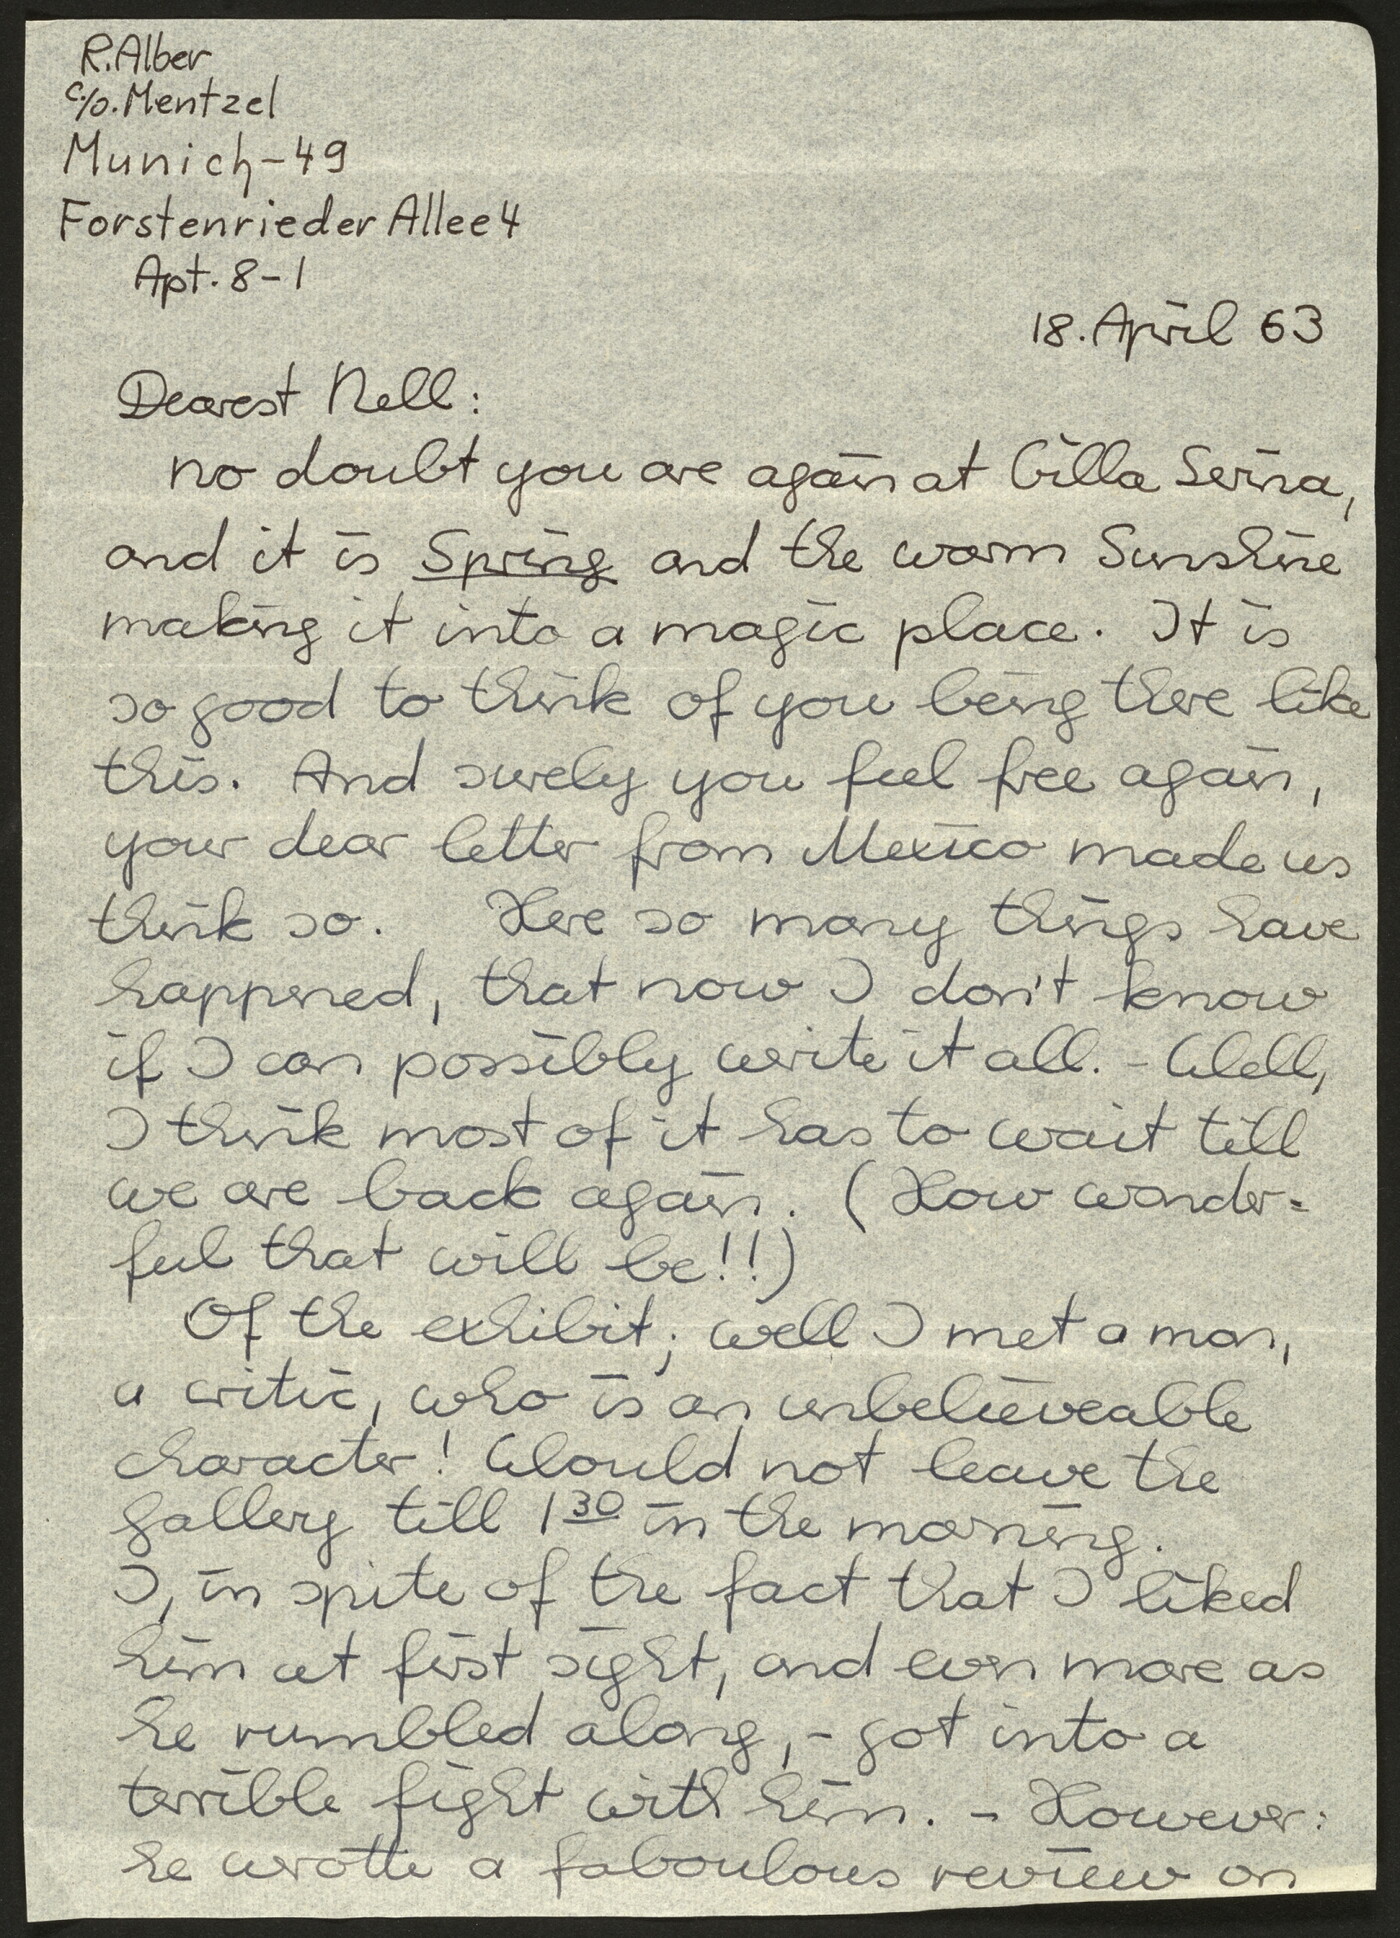 R. Alber
c/o. Mentzel
Munich-49
Forstenrieder Allee 4
Apt. 8-1
18. April 63
Dearest Nell:
no doubt you are again at Villa Serina,
and it is Spring and the warm Sunshine
making it into a magic place. It is
so good to think of you being there like
this. And surely you feel free again,
your dear letter from Mexico made us
think so. Here so many things have
happened, that now I don't know
if I can possibly write it all. - Well,
I think most of it has to wait till
we are back again. (How wonder=
ful that will be!!)
Of the exhibit; well I met a man,
a critic, who is an unbelieveable
character! Would not leave the
gallery till 1 30 in the morning.
I, in spite of the fact that I liked
him at first sight, and even more as
he rumbled along, - got into a
terrible fight with him. - However:
he wrotte a faboulous review on